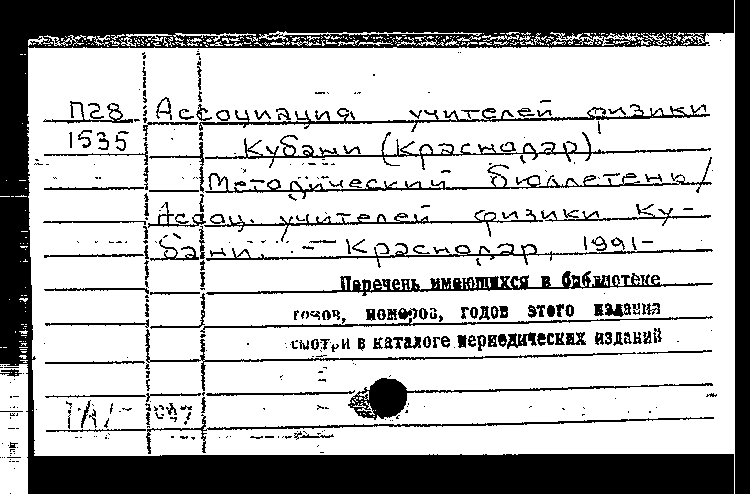 П28 Ассоциация учителей физики
1535 Кубани (Краснодар).
Методический бюллетень /
Ассоц. учителей физики Ку-
бани. - Краснодар, 1991-
Перечень имеющихся в библиотеке
томов, номеров, годов этого издания
смотри в каталоге периодических изданий